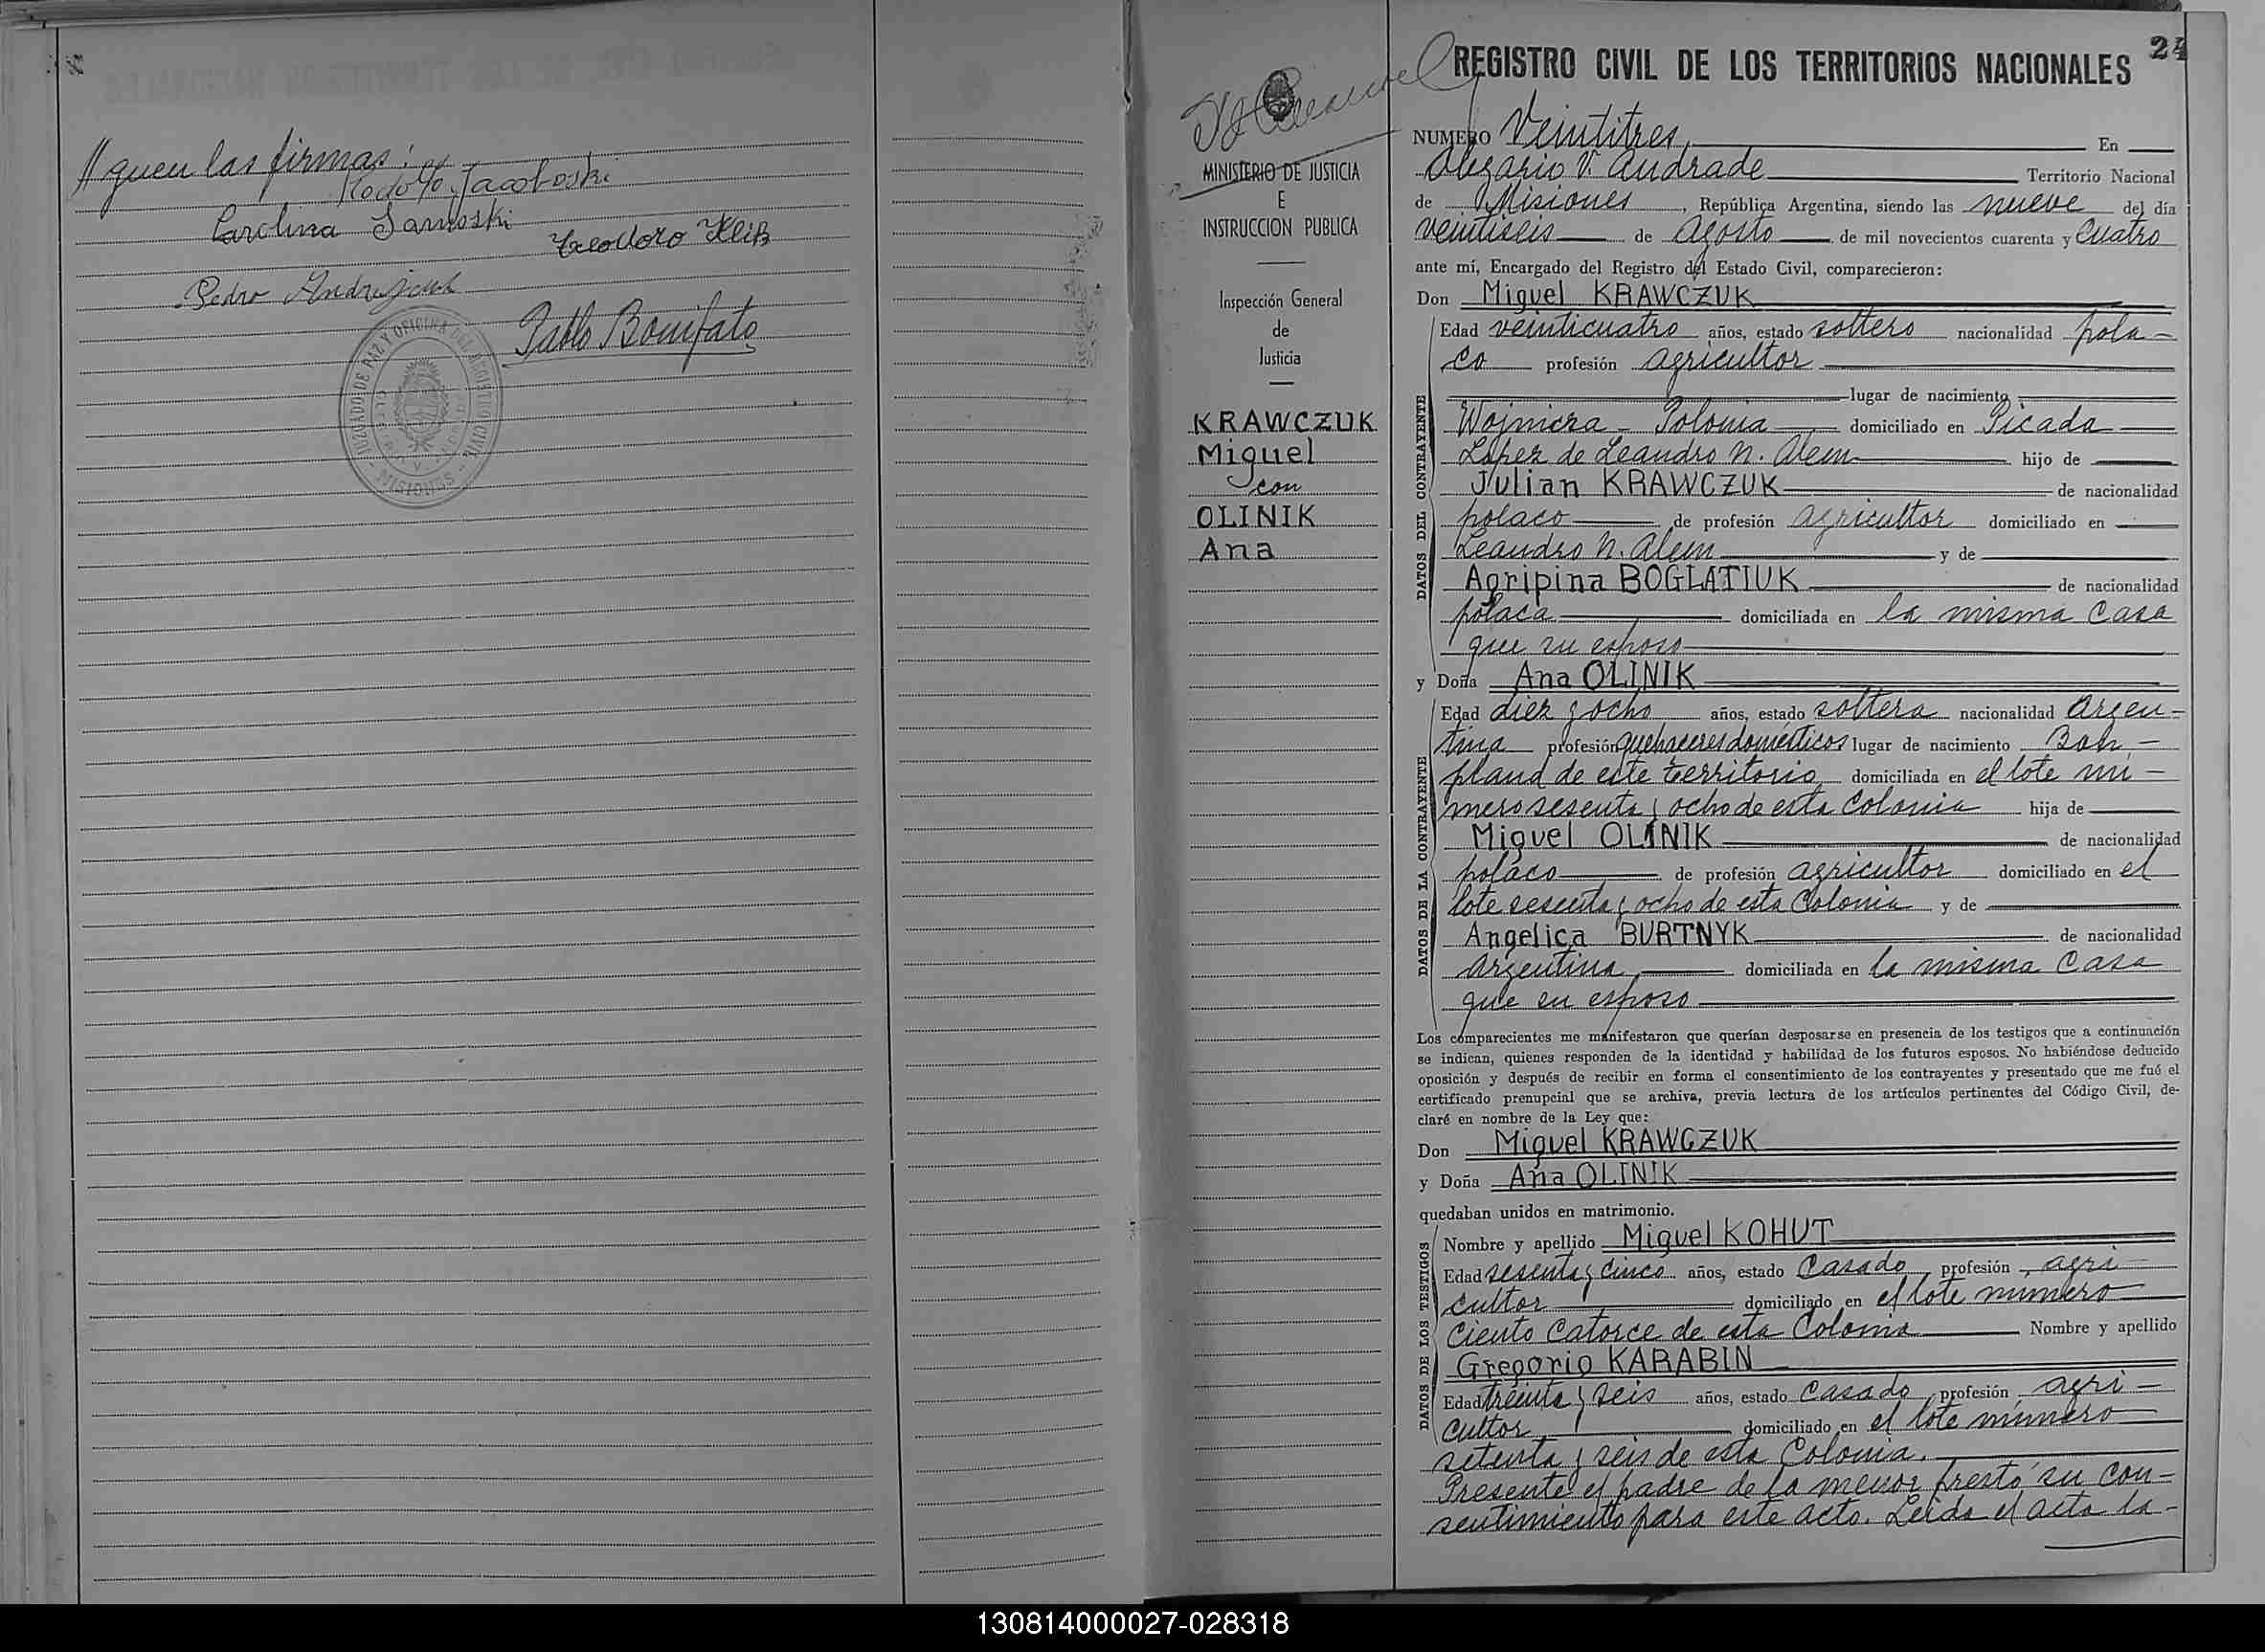 //guen las firmas:
Rodolfo Jacoboski
Carolina
Teodoro
Pedro
Pablo Bonifato
JUZGADO DE PAZ Y OFICINA DEL REGISTRO CIVIL
- MISIONES -
24
REGISTRO CIVIL DE LOS TERRITORIOS NACIONALES
MINISTERIO DE JUSTICIA
E
INSTRUCCION PUBLICA
Inspección General
de
Justicia
KRAWCZUK
Miguel
con
OLINIK
Ana
NUMERO Veintitres, En
Olegario V. Andrade Territorio Nacional
de Misiones, República Argentina, siendo las nueve del día
veintiseis de Agosto de mil novecientos cuarenta y Cuatro
ante mí, Encargado del Registro del Estado Civil, comparecieron:
Don Miguel KRAWCZUK
Edad veinticuatro años, estado soltero nacionalidad pola-
co profesión agricultor
lugar de nacimiento
Polonia domiciliado en Picada
Lopez de Leandro N. Alem hijo de
Julian KRAWCZUK de nacionalidad
polaco de profesión agricultor domiciliado en
Leandro N. Alem y de
Agripina BOGLATIUK de nacionalidad
polaca domiciliada en la misma casa
que su esposo
DATOS DEL CONTRAYENTE
y Doña Ana OLINIK
Edad diez y ocho años, estado soltera nacionalidad argen-
tina profesión quehaceres domesticos lugar de nacimiento Bon-
pland de este territorio domiciliada en el lote nú-
mero sesenta y ocho de esta Colonia hija de
Miguel OLINIK de nacionalidad
polaco de profesión agricultor domiciliado en el
lote sesenta y ocho de esta Colonia y de
Angelica BURTNYK de nacionalidad
argentina, domiciliada en la misma casa
que su esposo
DATOS DE LA CONTRAYENTE
Los comparecientes me manifestaron que querían desposarse en presencia de los testigos que a continuación
se indican, quienes responden de la identidad y habilidad de los futuros esposos. No habiéndose deducido
oposición y después de recibir en forma el consentimiento de los contrayentes y presentado que me fué el
certificado prenupcial que se archiva, previa lectura de los artículos pertinentes del Código Civil, de-
claré en nombre de la Ley que:
Don Miguel KRAWCZUK
y Doña Ana OLINIK
quedaban unidos en matrimonio.
Nombre y apellido Miguel KOHUT
Edad sesenta y cinco años, estado Casado, profesión agri-
cultor domiciliado en el lote número
Ciento Catorce de esta Colonia Nombre y apellido
Gregorio KARABIN
Edad treinta y seis años, estado Casado, profesión agri-
cultor, domiciliado en el lote número
setenta y seis de esta Colonia.
DATOS DE LOS TESTIGOS
Presente el padre de la menor prestó su con-
sentimiento para este acto. Leida el acta la-
130814000027-028318